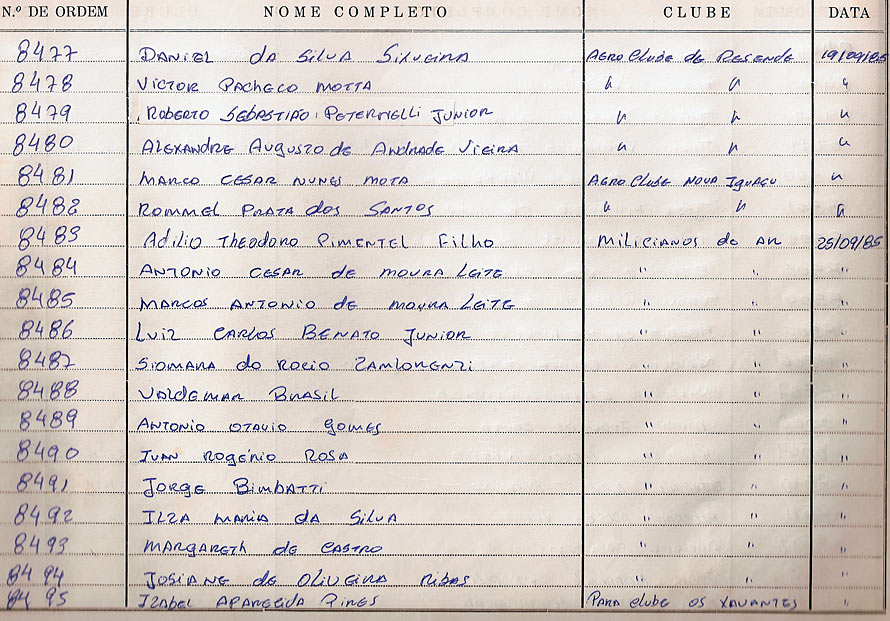 N.º DE ORDEM NOME COMPLETO CLUBE DATA
8477 DANIEL da SILVA SILVEIRA AERO CLUBE de RESENDE 19/09/85
8478 VICTOR PACHECO MOTTA " " "
8479 ROBERTO SEBASTIÃO PETERNELLI JUNIOR " " "
8480 ALEXANDRE AUGUSTO de ANDRADE VIEIRA " " "
8481 MARCO CESAR NUNES MOTA AERO CLUBE NOVA IGUAÇU "
8482 ROMMEL PRATA dos SANTOS " " "
8483 ADILIO THEODORO PIMENTEL FILHO MILICIANOS do AR 25/09/85
8484 ANTONIO CESAR de MOURA LEITE " " "
8485 MARCOS ANTONIO de MOURA LEITE " " "
8486 LUIZ CARLOS BENATO JUNIOR " " "
8487 SIOMARA do ROCIO ZAMLORENZI " " "
8488 VALDEMAR BRASIL " " "
8489 ANTONIO OTAVIO GOMES " " "
8490 IVAN ROGÉRIO ROSA " " "
8491 JORGE BIMBATTI " " "
8492 ILZA MARIA da SILVA " " "
8493 MARGARETH de CASTRO " " "
8494 JOSIANE de OLIVEIRA RIBAS " " "
8495 IZABEL APARECIDA PIRES PARA CLUBE OS XAVANTES "